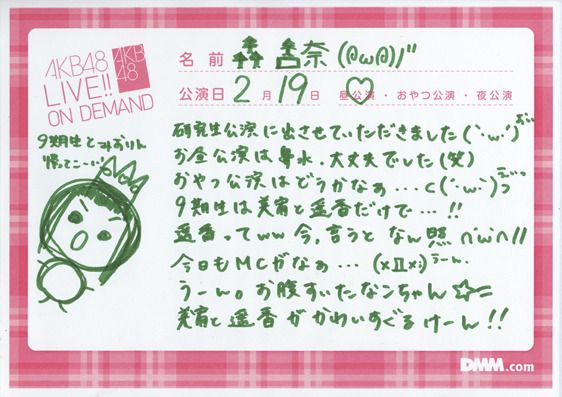 AKB48
LIVE!!
ON DEMAND
AKB
48
名前 森 杏奈(ฅωฅ)//"
公演日 2月19日 昼公演・おやつ公演・夜公演
9期生とみおりん
帰ってこ〜い
研究生公演に出させていただきました(`･ω･´)
お昼公演は 水.大丈夫でした(笑)
おやつ公演はどうかなぁ…c(`･ω･´)
9期生は美宥と遥香だけで…!!
遥香ってww今,言うとなん照^ω^//
今日もMCがなぁ…(×Д×;)うーん.
うーん。お腹すいたなンちゃん☆=
美宥と遥香がかわいすぐるけーん!!
DMM.com